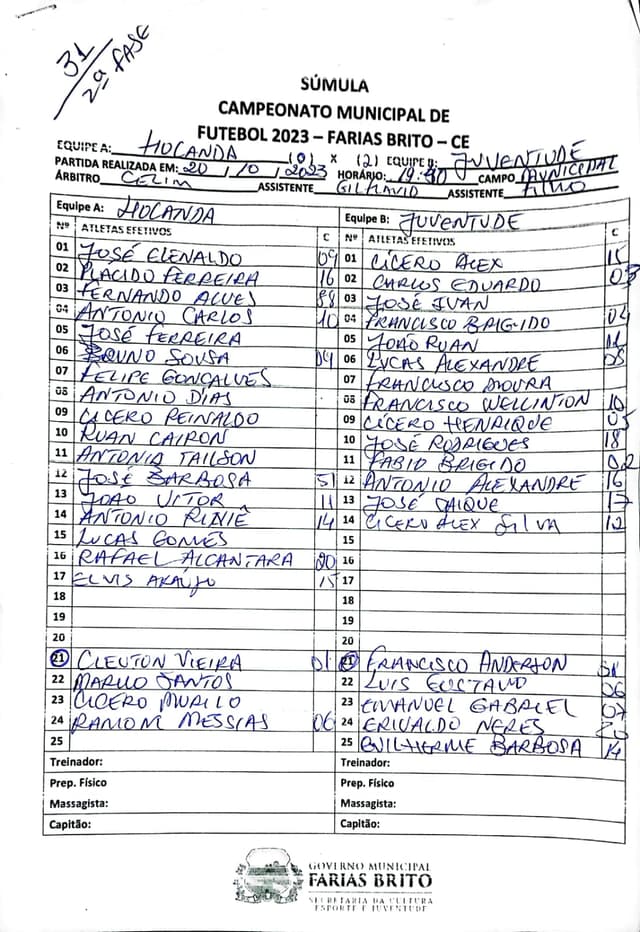 31
2ª FASE
SÚMULA
CAMPEONATO MUNICIPAL DE
FUTEBOL 2023 – FARIAS BRITO – CE
EQUIPE A: HOLANDA (0) X (2) EQUIPE B: JUVENTUDE
PARTIDA REALIZADA EM: 20 / 10 / 2023 HORÁRIO: 19:30 CAMPO MUNICIPAL
ÁRBITRO CELIM ASSISTENTE GILFLAVIO ASSISTENTE
Equipe A: HOLANDA Equipe B: JUVENTUDE
Nº ATLETAS EFETIVOS C Nº ATLETAS EFETIVOS C
01 JOSÉ CLENALDO 09 01 CÍCERO ALEX 15
02 PLACIDO FERREIRA 16 02 CARLOS EDUARDO 03
03 FERNANDO ALVES 88 03 JOSÉ IVAN
04 ANTONIO CARLOS 10 04 FRANCISCO BRIGIDO 04
05 JOSÉ FERREIRA 05 JOÃO RUAN 11
06 BRUNO SOUSA 04 06 LUCAS ALEXANDRE 08
07 FELIPE GONÇALVES 07 FRANCISCO MOURA
08 ANTONIO DIAS 08 FRANCISCO WELLINTON 10
09 CICERO REINALDO 09 CÍCERO HENRIQUE 05
10 RUAN CAIRON 10 JOSÉ RODRIGUES 18
11 ANTONIA TAILSON 11 FABIO BRIGIDO 02
12 JOSÉ BARBOSA 51 12 ANTONIO ALEXANDRE 16
13 JOAO VITOR 11 13 JOSÉ CAIQUE 17
14 ANTONIO RINIÊ 14 14 CICERO ALEX SILVA 12
15 LUCAS GOMES 15
16 RAFAEL ALCANTARA 20 16
17 ELVIS ARAÚJO 15 17
18 18
19 19
20 20
21 CLEUTON VIEIRA 01 21 FRANCISCO ANDERSON
22 MARLLO SANTOS 22 LUIS GUSTAVO 06
23 CICERO MURILO 23 EMANUEL GABRIEL 07
24 RAMOM MESSIAS 06 24 ERIVALDO NERES 20
25 25 GUILHERME BARBOSA 14
Treinador: Treinador:
Prep. Físico Prep. Físico
Massagista: Massagista:
Capitão: Capitão:
GOVERNO MUNICIPAL
FARIAS BRITO
SECRETARIA DA CULTURA
ESPORTE E JUVENTUDE